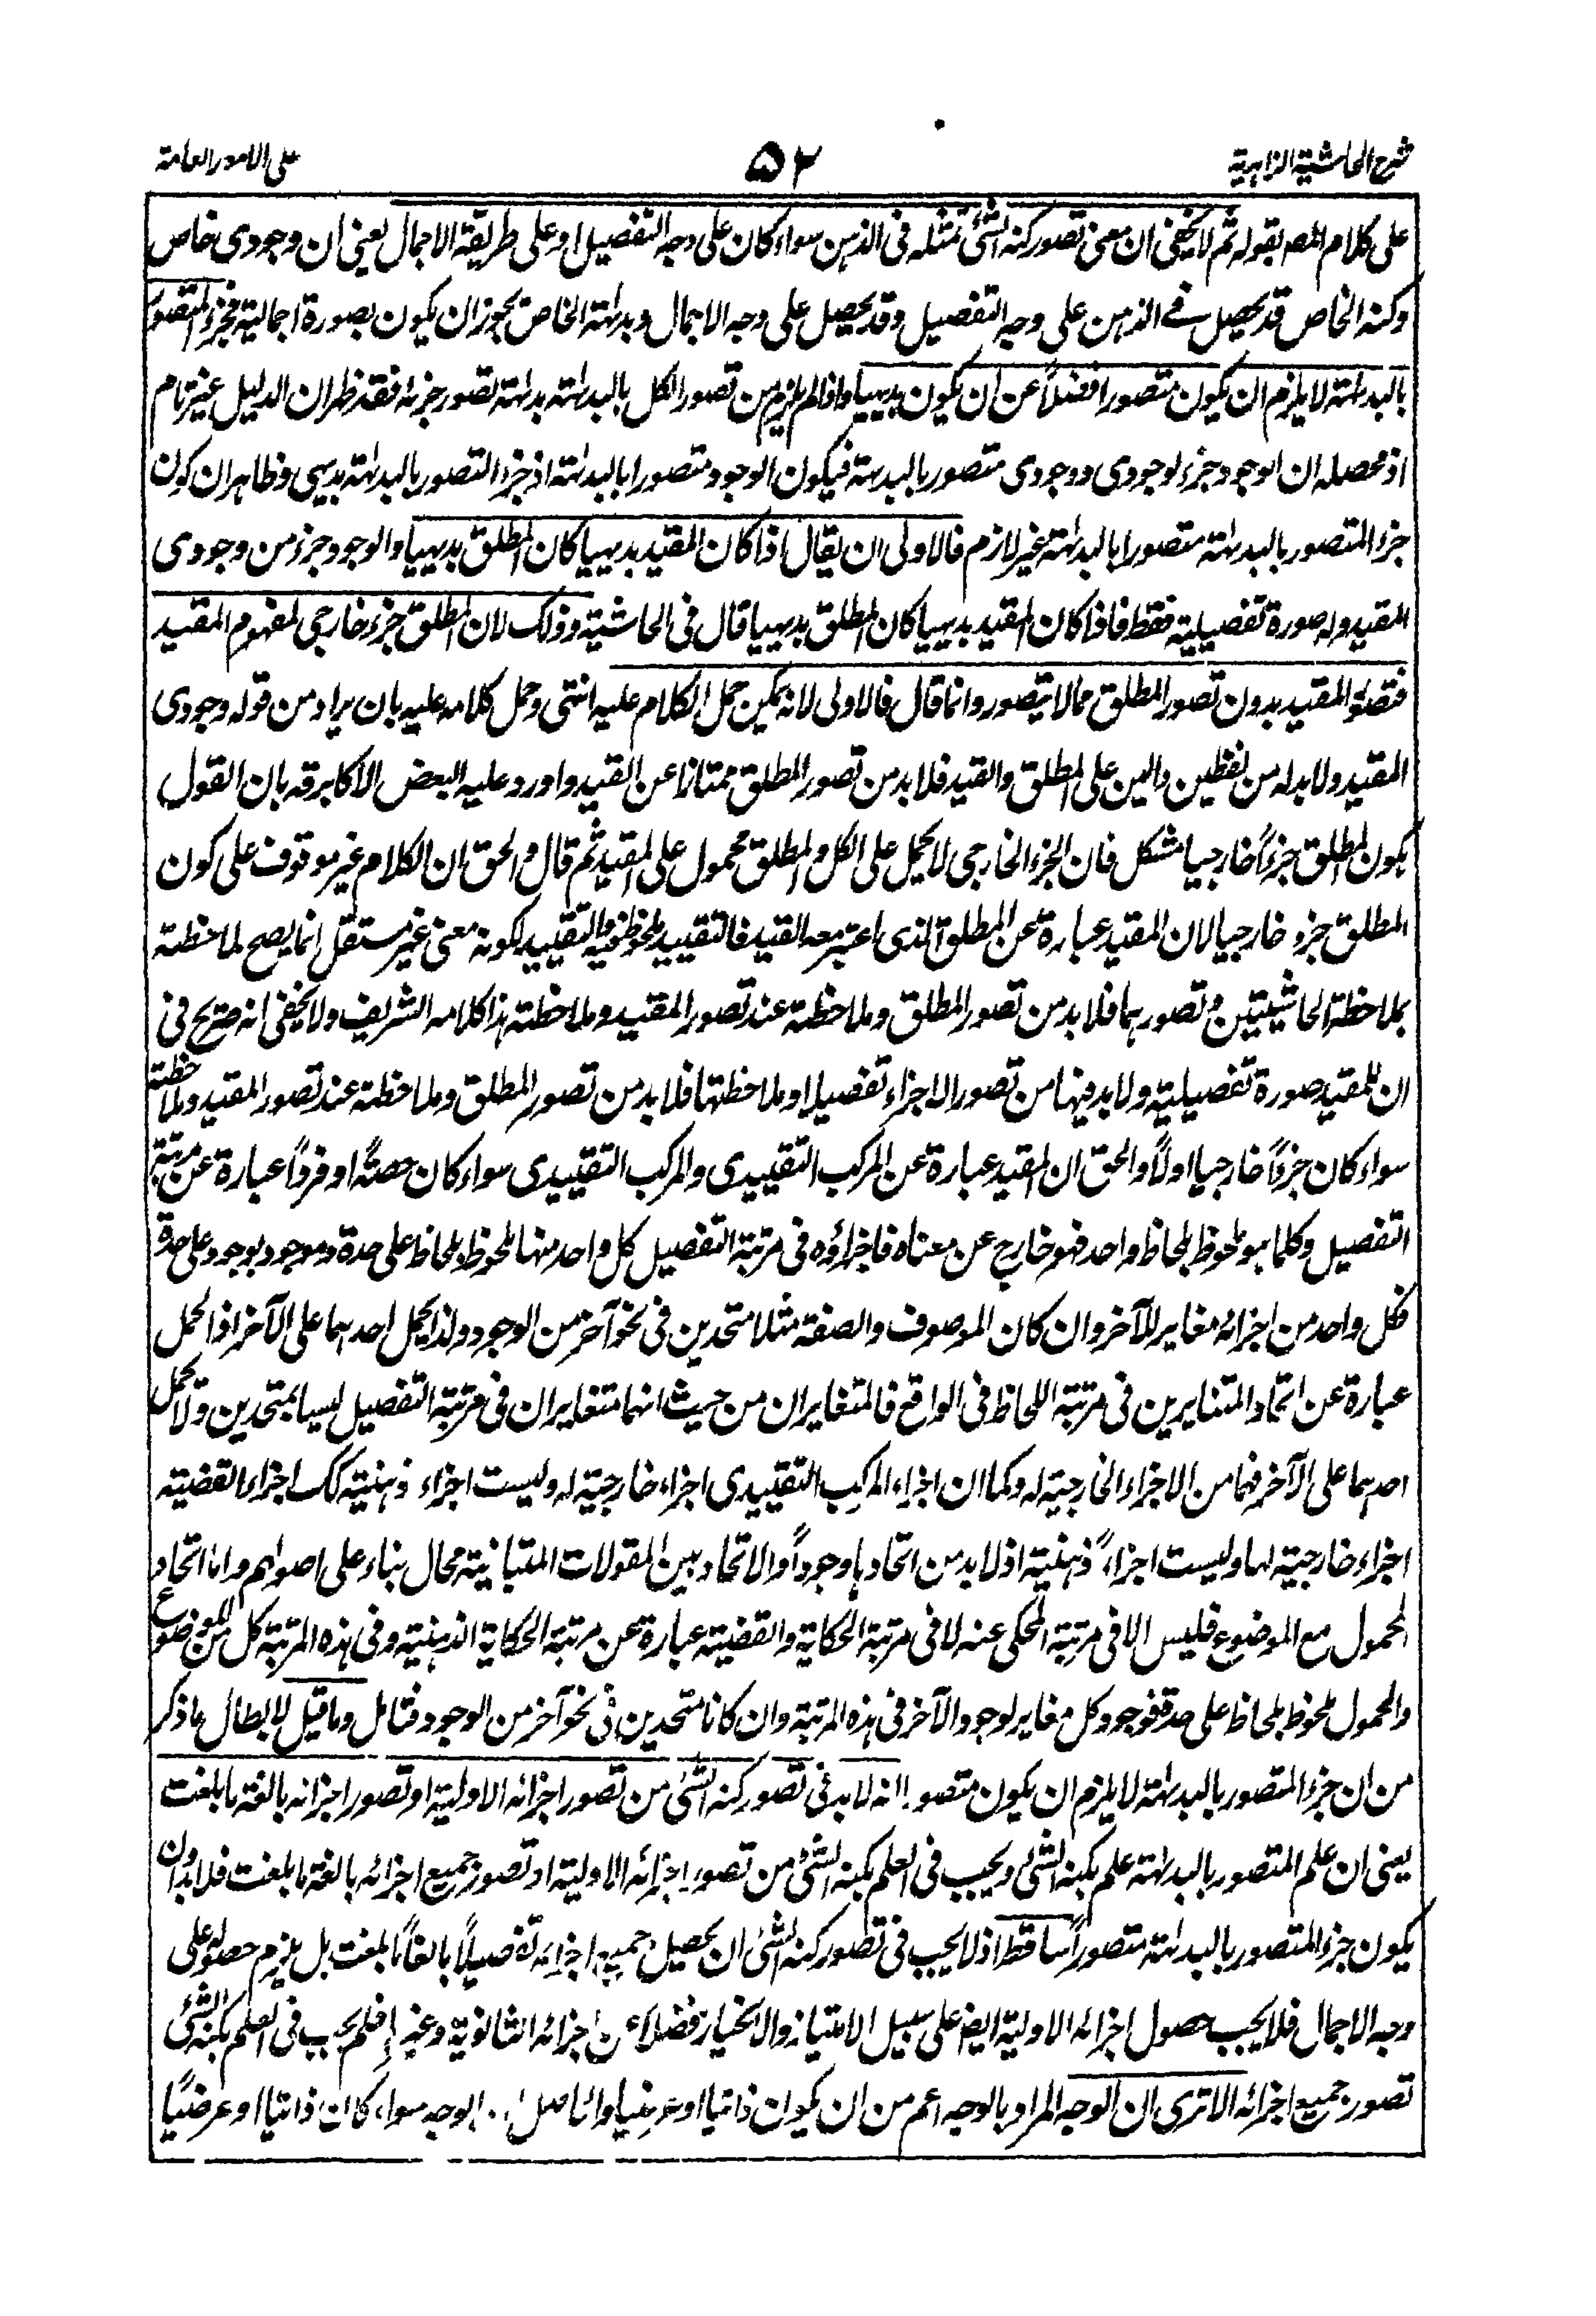 شرح الحاشية الزاهرية
۵۲
على الامور العامة
على كلام المصـ بقوله ثم لا يخفى ان معنى تصور كنه الشئ تمثله فى الذهن سواء كان على وجه التفصيل او على طريقة الاجمال يعنى ان وجودى خاص
وكنه الخاص قد يحصل فے الذهن على وجه التفصيل وقد يحصل على وجه الاجمال وبداهتة الخاص يجوز ان يكون بصورة اجمالية فجزء المتصور
بالبداهتة لا يلزم ان يكون متصورا فضلاً عن ان يكون بديهيا واذا لم يلزم من تصور الكل بالبداهتة بداهتة تصور جزئه فقد ظهر ان الدليل غير تام
اذ محصله ان الوجود جزء لوجودى ووجودى متصور بالبديهة فيكون الوجود متصورا بالبداهتة اذ جزء المتصور بالبداهتة بديهى وظاهر ان كون
جزء المتصور بالبداهتة متصورا بالبداهتة غير لازم فالاولى ان يقال اذا كان المقيد بديهيا كان المطلق بديهيا والوجود جزء من وجودى
المقيد وله صورة تفصيلية فقط فاذا كان المقيد بديهيا كان المطلق بديهيا قال فى الحاشية وذلك لان المطلق جزء خارجى لمفهوم المقيد
فتصور المقيد بدون تصور المطلق مما لا يتصور وانما قال فالاولى لانه يمكن حمل الكلام عليه انتهى وحمل كلامه عليه بان يراد من قوله وجودى
المقيد ولا بد له من لفظين دالين على المطلق والقيد فلا بد من تصور المطلق ممتازا عن القيد واورد عليه البعض الاكابر قه بان القول
بكون المطلق جزءاً خارجيا مشكل فان الجزء الخارجى لا يحمل على الكل والمطلق محمول على المقيد ثم قال والحق ان الكلام غير موقوف على كون
المطلق جزء خارجيا لان المقيد عبارة عن المطلق الذى اعتبر معه القيد فالتقييد ملحوظ فيه والتقييد لكونه معنى غير مستقل انما يصح لملاحظته
بملاحظة الحاشيتين وتصورهما فلا بد من تصور المطلق وملاحظته عند تصور المقيد وملاحظته هذا كلامه الشريف ولا يخفى انه صريح فى
ان للمقيد صورة تفصيلية ولا بد فيها من تصور الاجزاء تفصيلا وملاحظتها فلا بد من تصور المطلق وملاحظته عند تصور المقيد وملاحظته
سواء كان جزءاً خارجيا اولاً والحق ان المقيد عبارة عن المركب التقييدى والمركب التقييدى سواء كان حصةً او فرداً عبارة عن مرتبة
التفصيل وكلما هو ملحوظ بلحاظ واحد فهو خارج عن معناه فاجزاؤه فى مرتبة التفصيل كل واحد منها ملحوظ بلحاظ على حدة وموجود بوجود على حدة
فكل واحد من اجزائه مغاير للآخر وان كان الموصوف والصفة مثلا متحدين فى نحو آخر من الوجود ولذا يحمل احدهما على الآخر اذ الحمل
عبارة عن اتحاد المتغايرين فى مرتبة اللحاظ فى الواقع فالمتغايران من حيث انهما متغايران فى مرتبة التفصيل ليسا بمتحدين ولا يحمل
احدهما على الآخر فهما من الاجزاء الخارجية له وكما ان اجزاء المركب التقييدى اجزاء خارجية له وليست اجزاء ذهنية كك اجزاء القضية
اجزاء خارجية لها وليست اجزاءً ذهنية اذ لا بد من اتحادها وجوداً والاتحاد بين المقولات المتباينة محال بناء على اصولهم واما اتحاد
المحمول مع الموضوع فليس الا فى مرتبة المحكى عنه لا فى مرتبة الحكاية والقضية عبارة عن مرتبة الحكاية الذهنية وفى هذه المرتبة كل من الموضوع
والمحمول ملحوظ بلحاظ على حدة فوجود كل مغاير لوجود الآخر فى هذه المرتبة وان كانا متحدين فى نحو آخر من الوجود فتامل وما قيل لابطال ما ذكر
من ان جزء المتصور بالبداهتة لا يلزم ان يكون متصورا انه لا بد فى تصور كنه الشئ من تصور اجزائه الاولية او تصور اجزائه بالغة ما بلغت
يعنى ان علم المتصور بالبداهتة علم بكنه الشئ ويجب فى العلم بكنه الشئ من تصور اجزائه الاولية او تصور جميع اجزائه بالغة ما بلغت فلا بد ان
يكون جزء المتصور بالبداهتة متصوراً ساقط اذ لا يجب فى تصور كنه الشئ ان يحصل جميع اجزائه تفصيلاً بالغاً ما بلغت بل يلزم حصوله على
وجه الاجمال فلا يجب حصول اجزائه الاولية ايضا على سبيل الامتياز والاختيار فضلا عن اجزائه الثانوية وغيرها فلم يجب فى العلم بكنه الشئ
تصور جميع اجزائه الا ترى ان الوجه المراد بالوجه اعم من ان يكون ذاتيا او عرضيا والحاصل ان الوجه سواء كان ذاتيا او عرضيًا